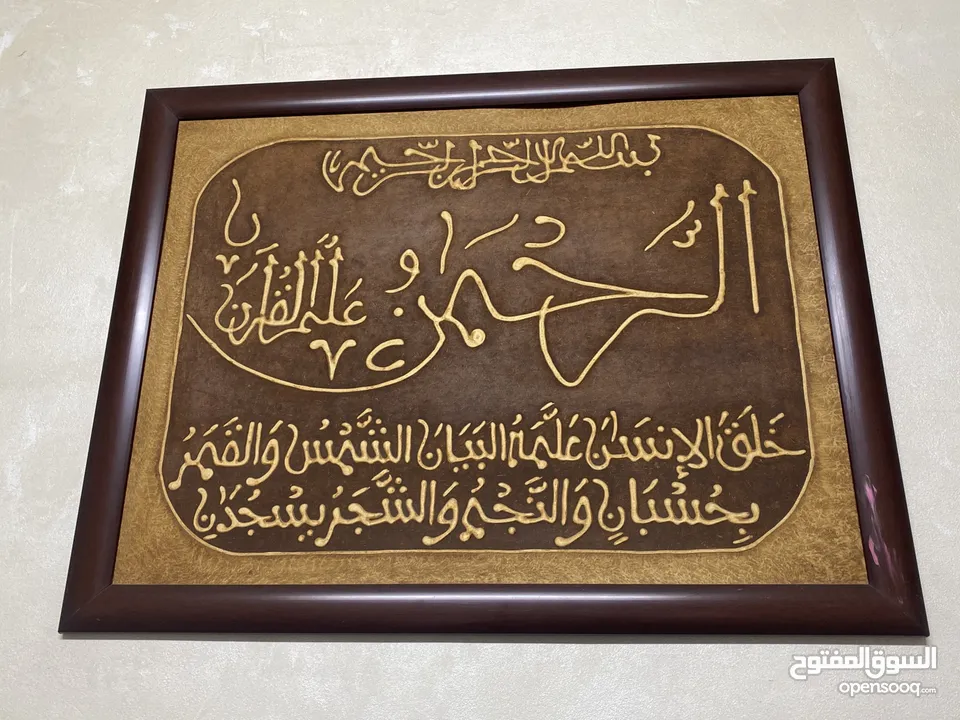 بسم الله الرحمن الرحيم
الرَّحْمَنُ عَلَّمَ الْقُرْآنَ
خَلَقَ الإِنسَانَ عَلَّمَهُ البَيَانَ الشَّمْسُ وَالقَمَرُ
بِحُسْبَانٍ وَالنَّجْمُ وَالشَّجَرُ يَسْجُدَانِ
السوق المفتوح
opensooq.com